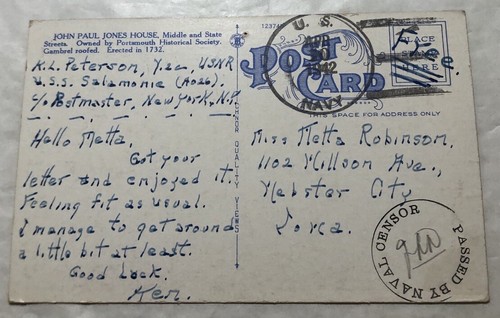 JOHN PAUL JONES HOUSE, Middle and State
Streets. Owned by Portsmouth Historical Society.
Gambrel roofed. Erected in 1732.
K.L. Peterson, Y2c, USNR
U.S.S. Salamonie (AO26).
c/o Postmaster, New York, N.Y.
Hello Metta,
Got your
letter and enjoyed it.
Feeling fit as usual.
I manage to get around
a little bit at least.
Good Luck.
Ken.
QUALITY VIEWS
POST
CARD
U. S.
APR
1942
NAVY
PLACE
STAMP
HERE
Free.
THIS SPACE FOR ADDRESS ONLY
Miss Metta Robinson
1102 Willson Ave.,
Webster City
Iowa.
PASSED BY NAVAL CENSOR